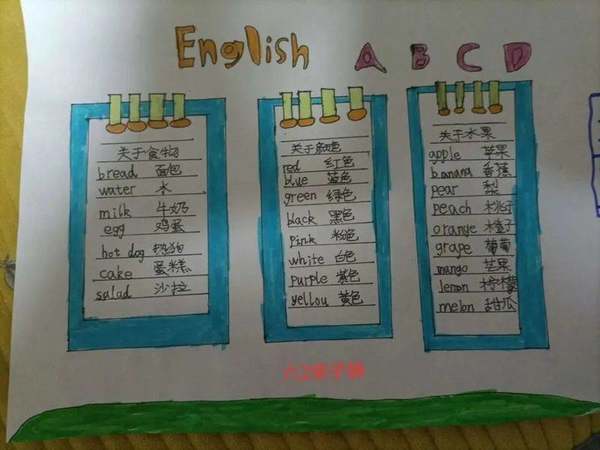 English A B C D
关于食物
bread 面包
water 水
milk 牛奶
egg 鸡蛋
hot dog 热狗
cake 蛋糕
salad 沙拉
关于颜色
red 红色
blue 蓝色
green 绿色
black 黑色
pink 粉色
white 白色
purple 紫色
yellou 黄色
关于水果
apple 苹果
banana 香蕉
pear 梨
peach 桃子
orange 橙子
grape 葡萄
mango 芒果
lemon 柠檬
melon 甜瓜